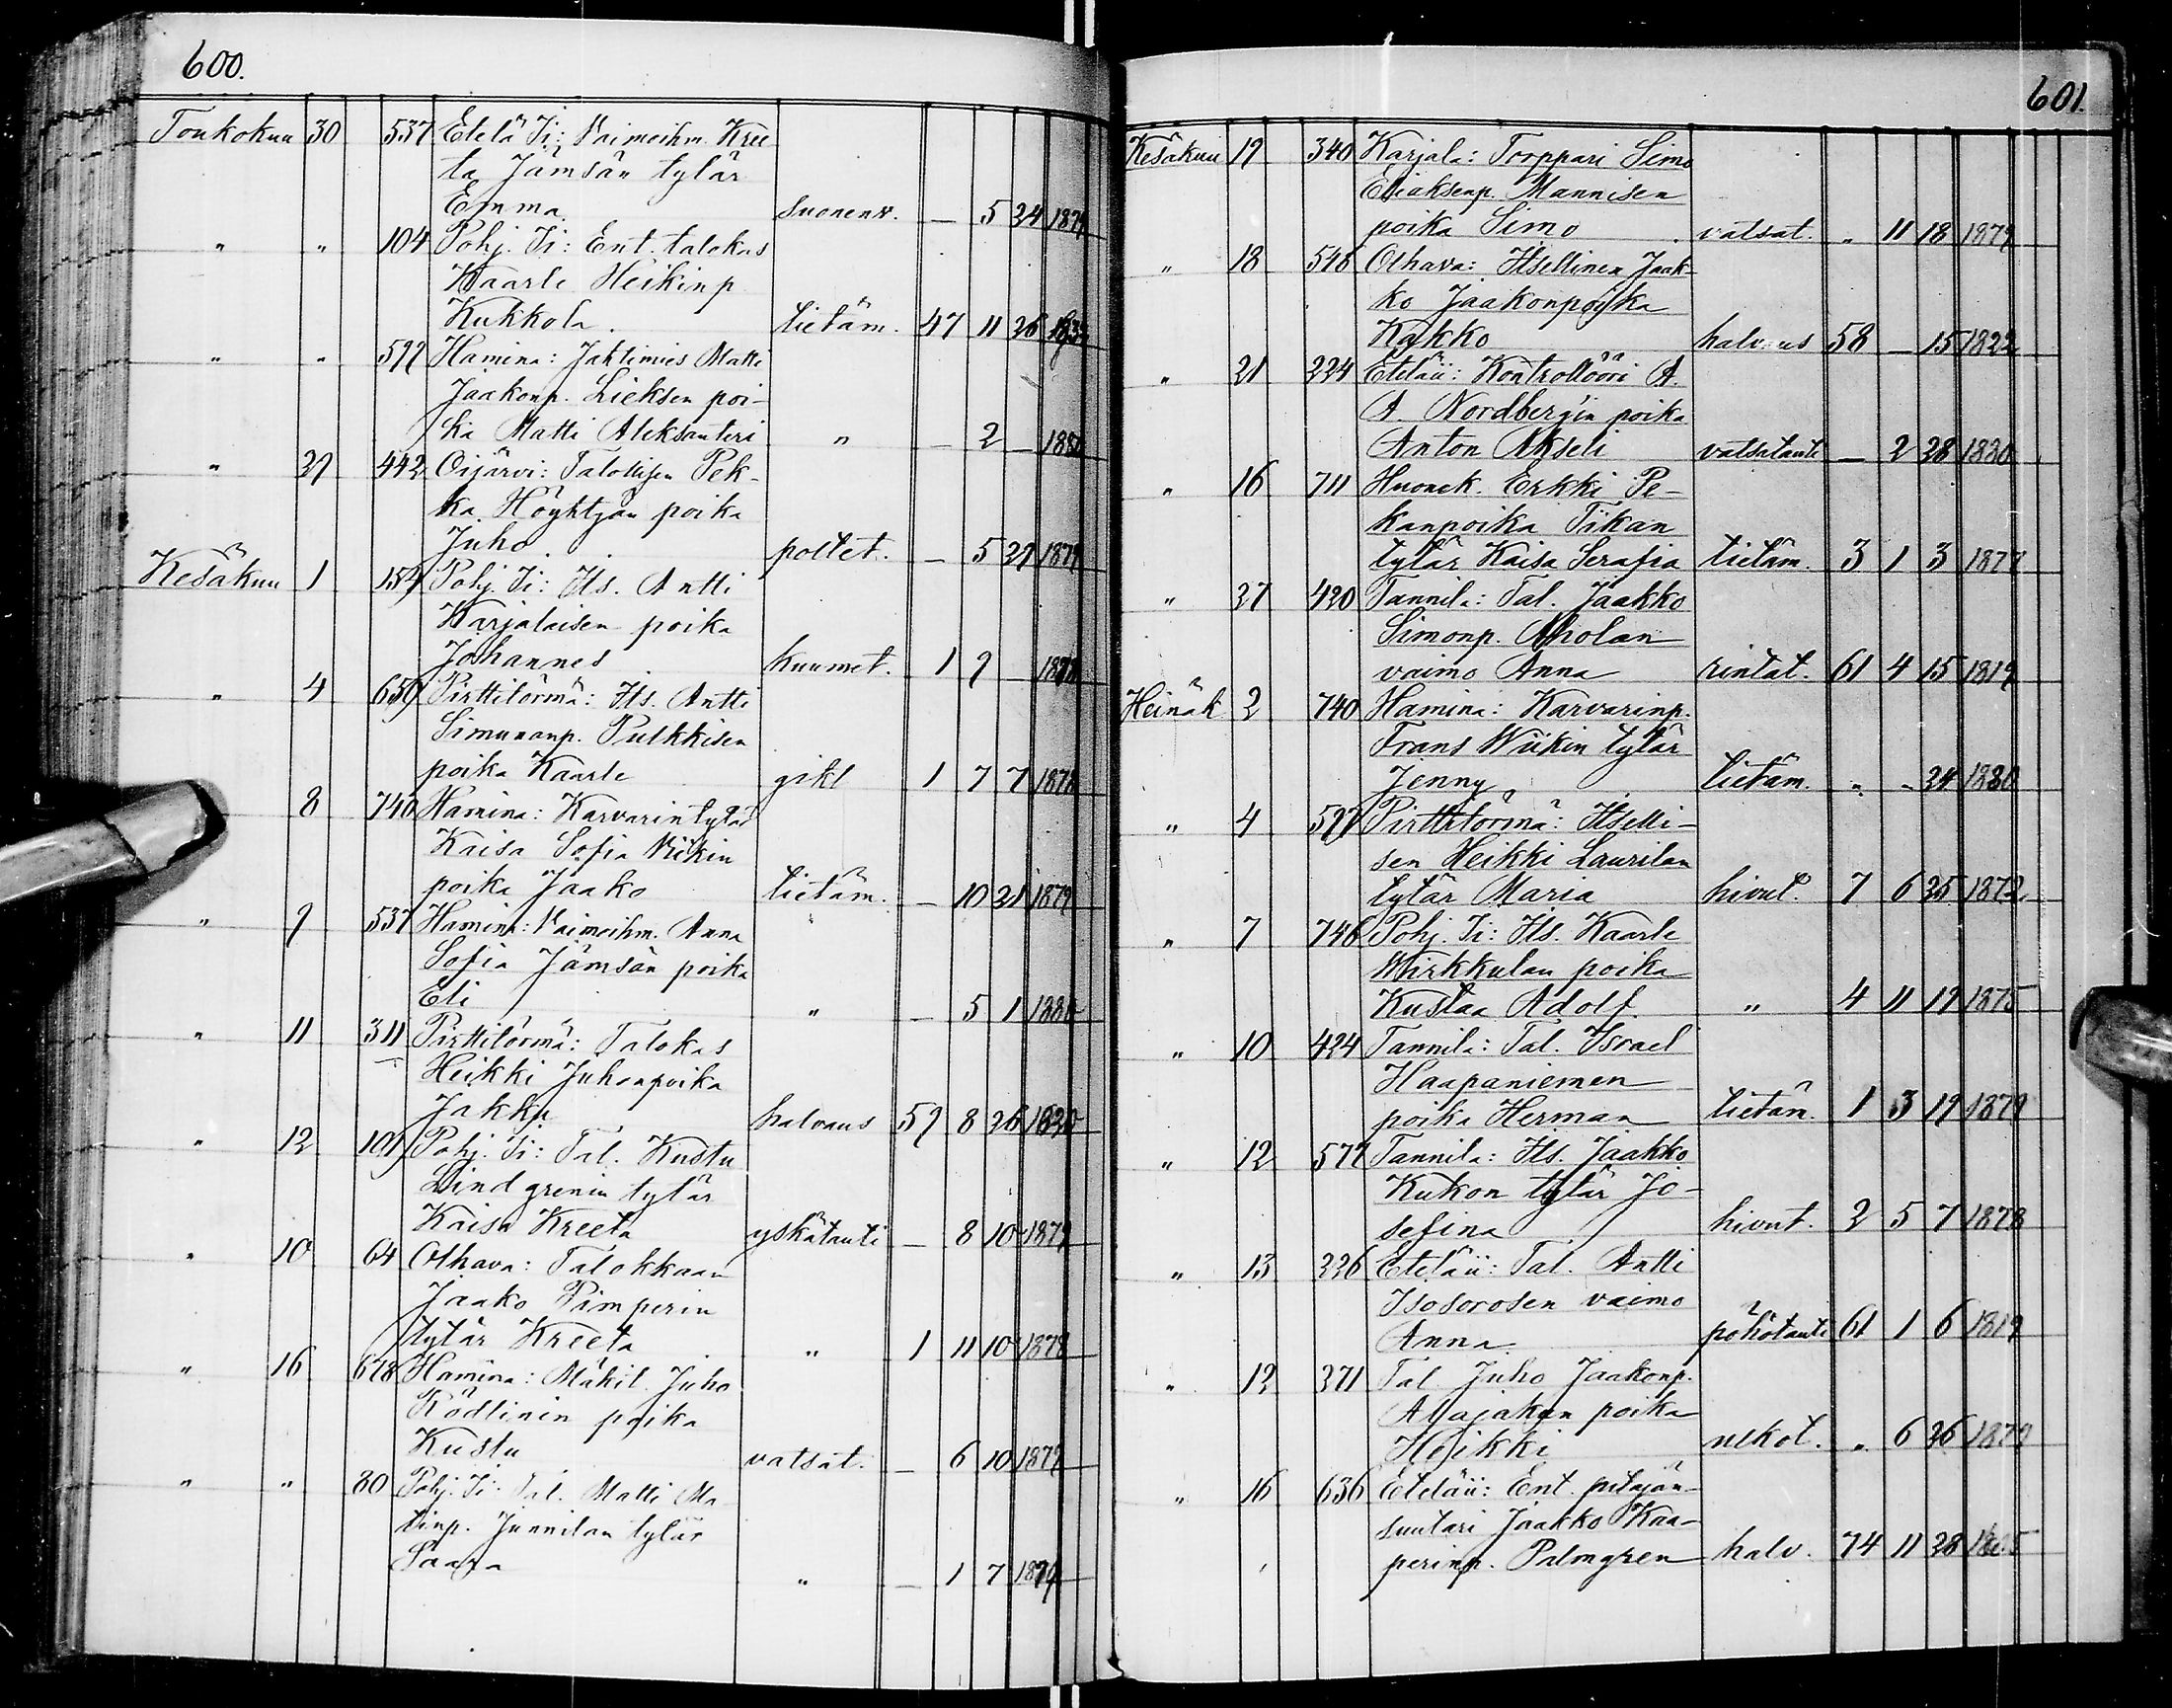 600.
Toukokuu 30 537 Etelä Ii: Vaimoihm. Kree
ta Jämsän tytär
Emma suonenv. — 5 24 1879
" " 104 Pohj. Ii: Ent. talokas
Kaarle Heikinp.
Kukkola. tietäm. 47 11 26
" " 599 Hamina: Jahtimies Matti
Jaakonp. Lieksen poi-
ka Matti Aleksanteri " — 2 — 1880
" 442 Oijärvi: Talollisen Pek-
ka Höyhtyän poika
Juho. poltet. — 5 1879
Kesäkuu 1 Pohj. Ii: Its. Antti
Karjalaisen poika
Johannes kuumet. 1 9 — 1878
" 4 659 Pirttitörmä: Its. Antti
Simunanp. Pulkkisen
poika Kaarle 1 7 7 1878
8 740 Hamina: Karvarin tytär
Kaisa Sofia Wiikin
poika Jaako tietäm. — 10 21 1879
" 9 537 Hamina: Vaimoihm. Anna
Sofia Jämsän poika
Eli " — 5 1 1880
" 11 311 Pirttitörmä: Talokas
Heikki Juhonpoika
Jakku halvaus 59 8 26 1820
" 12 109 Pohj. Ii: Tal. Kustu
Lindgrenin tytär
Kaisa Kreeta yskätauti — 8 10 1879
" 10 64 Olhava: Talokkaan
Jaako Pimperin
tytär Kreeta " 1 11 10 1878
" 16 678 Hamina: Mäkit. Juho
Rödlinin poika
Kustu vatsat. — 6 10 1879
" " 80 Pohj. Ii: Tal. Matti Ma
tinp. Junnilan tytär
Saara " — 1 7 1879
601.
Kesäkuu 19 340 Karjala: Torppari Simo
Eliaksenp. Mannisen
poika Simo vatsat. " 11 18 1879
" 18 546 Olhava: Itsellinen Jaak-
ko Jaakonpoika
Kakko halvaus 58 — 15 1822
" 21 224 Eteläii: Kontrollööri A.
A. Nordberg'in poika
Anton Akseli vatsatauti — 2 28 1880
" 16 711 Huonek. Erkki Pe-
kanpoika Tikan
tytär Kaisa Serafia tietäm. 3 1 3 1877
" 27 420 Tannila: Tal. Jaakko
Simonp. Aholan
vaimo Anna rintat. 61 4 15 1819
Heinäk 2 740 Hamina: Karvarinp.
Frans Wiikin tytär
Jenny tietäm. " - 24 1880
" 4 597 Pirttitörmä: Itselli-
sen Heikki Laurilan
tytär Maria hivut. 7 6 25 1872
" 7 746 Pohj. Ii: Its. Kaarle
Wirkkulan poika
Kustaa Adolf. " 4 11 19 1875
" 10 424 Tannila: Tal. Israel
Haapaniemen
poika Herman tietän. 1 3 19 1879
" 12 577 Tannila: Its. Jaakko
Kukon tytär Jo-
sefina hivut. 2 5 7 1878
" 13 226 Eteläii: Tal. Antti
Isosorosen vaimo
Anna pöhötauti 61 1 6 1819
" 12 371 Tal Juho Jaakonp.
Alajakun poika
Heikki ulkot. " 6 26 1879
" 16 636 Eteläii: Ent. pitäjän-
suutari Jaakko Kaa-
perinp. Palmgren halv. 74 11 28 1805